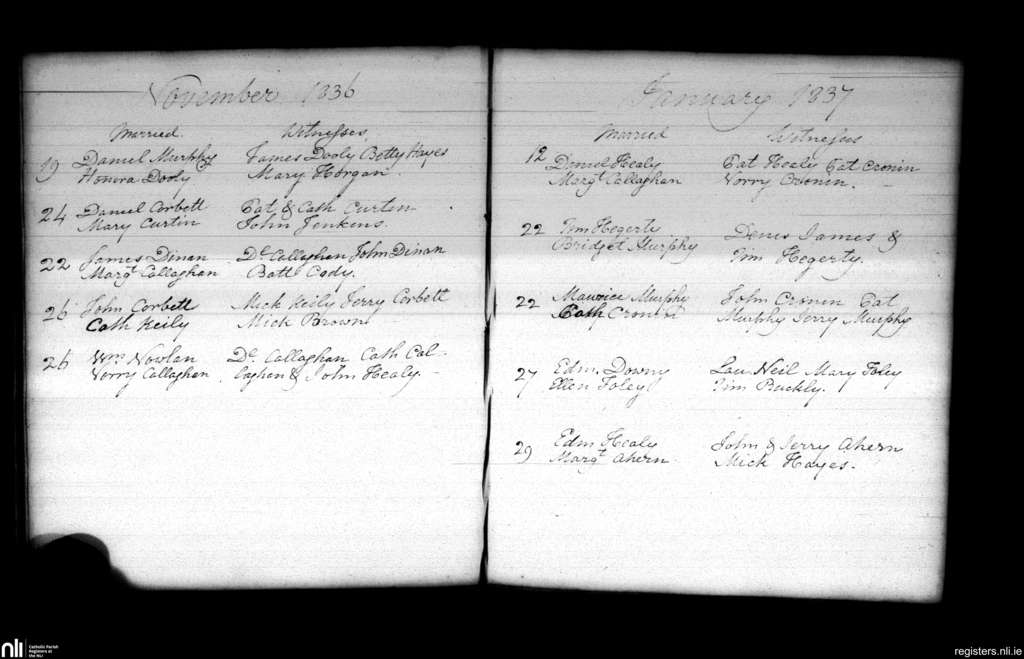 November 1836
Married. Witnesses
19 Daniel Murphy James Dooly Betty Hayes
Honora Dooly Mary Horgan.
24 Daniel Corbett Pat & Cath Curtin
Mary Curtin John Jenkins.
22 James Dinan Ds. Callaghan John Dinan
Margt Callaghan Batt Cody.
26 John Corbett Mick Keily Jerry Corbett
Cath Keily Mick Brown
26 Wm. Nowlan Ds. Callaghan Cath Cal-
Norry Callaghan laghan & John Healy.
January 1837
Married Witnesses
12 Daniel Healy Pat Healy Pat Cronin
Margt Callaghan Norry Cronin.
22 Tim Hegerty Denis James &
Bridget Murphy Tim Hegerty.
22 Maurice Murphy John Cronin Pat
Cath Cronin Murphy Jerry Murphy
27 Edm. Downy Lau Neil Mary Foley
Ellen Foley Tim Buckly.
29 Edm Healy John & Jerry Ahern
Margt Ahern Mick Hayes.
nli Catholic Parish
Registers at
the NLI
registers.nli.ie